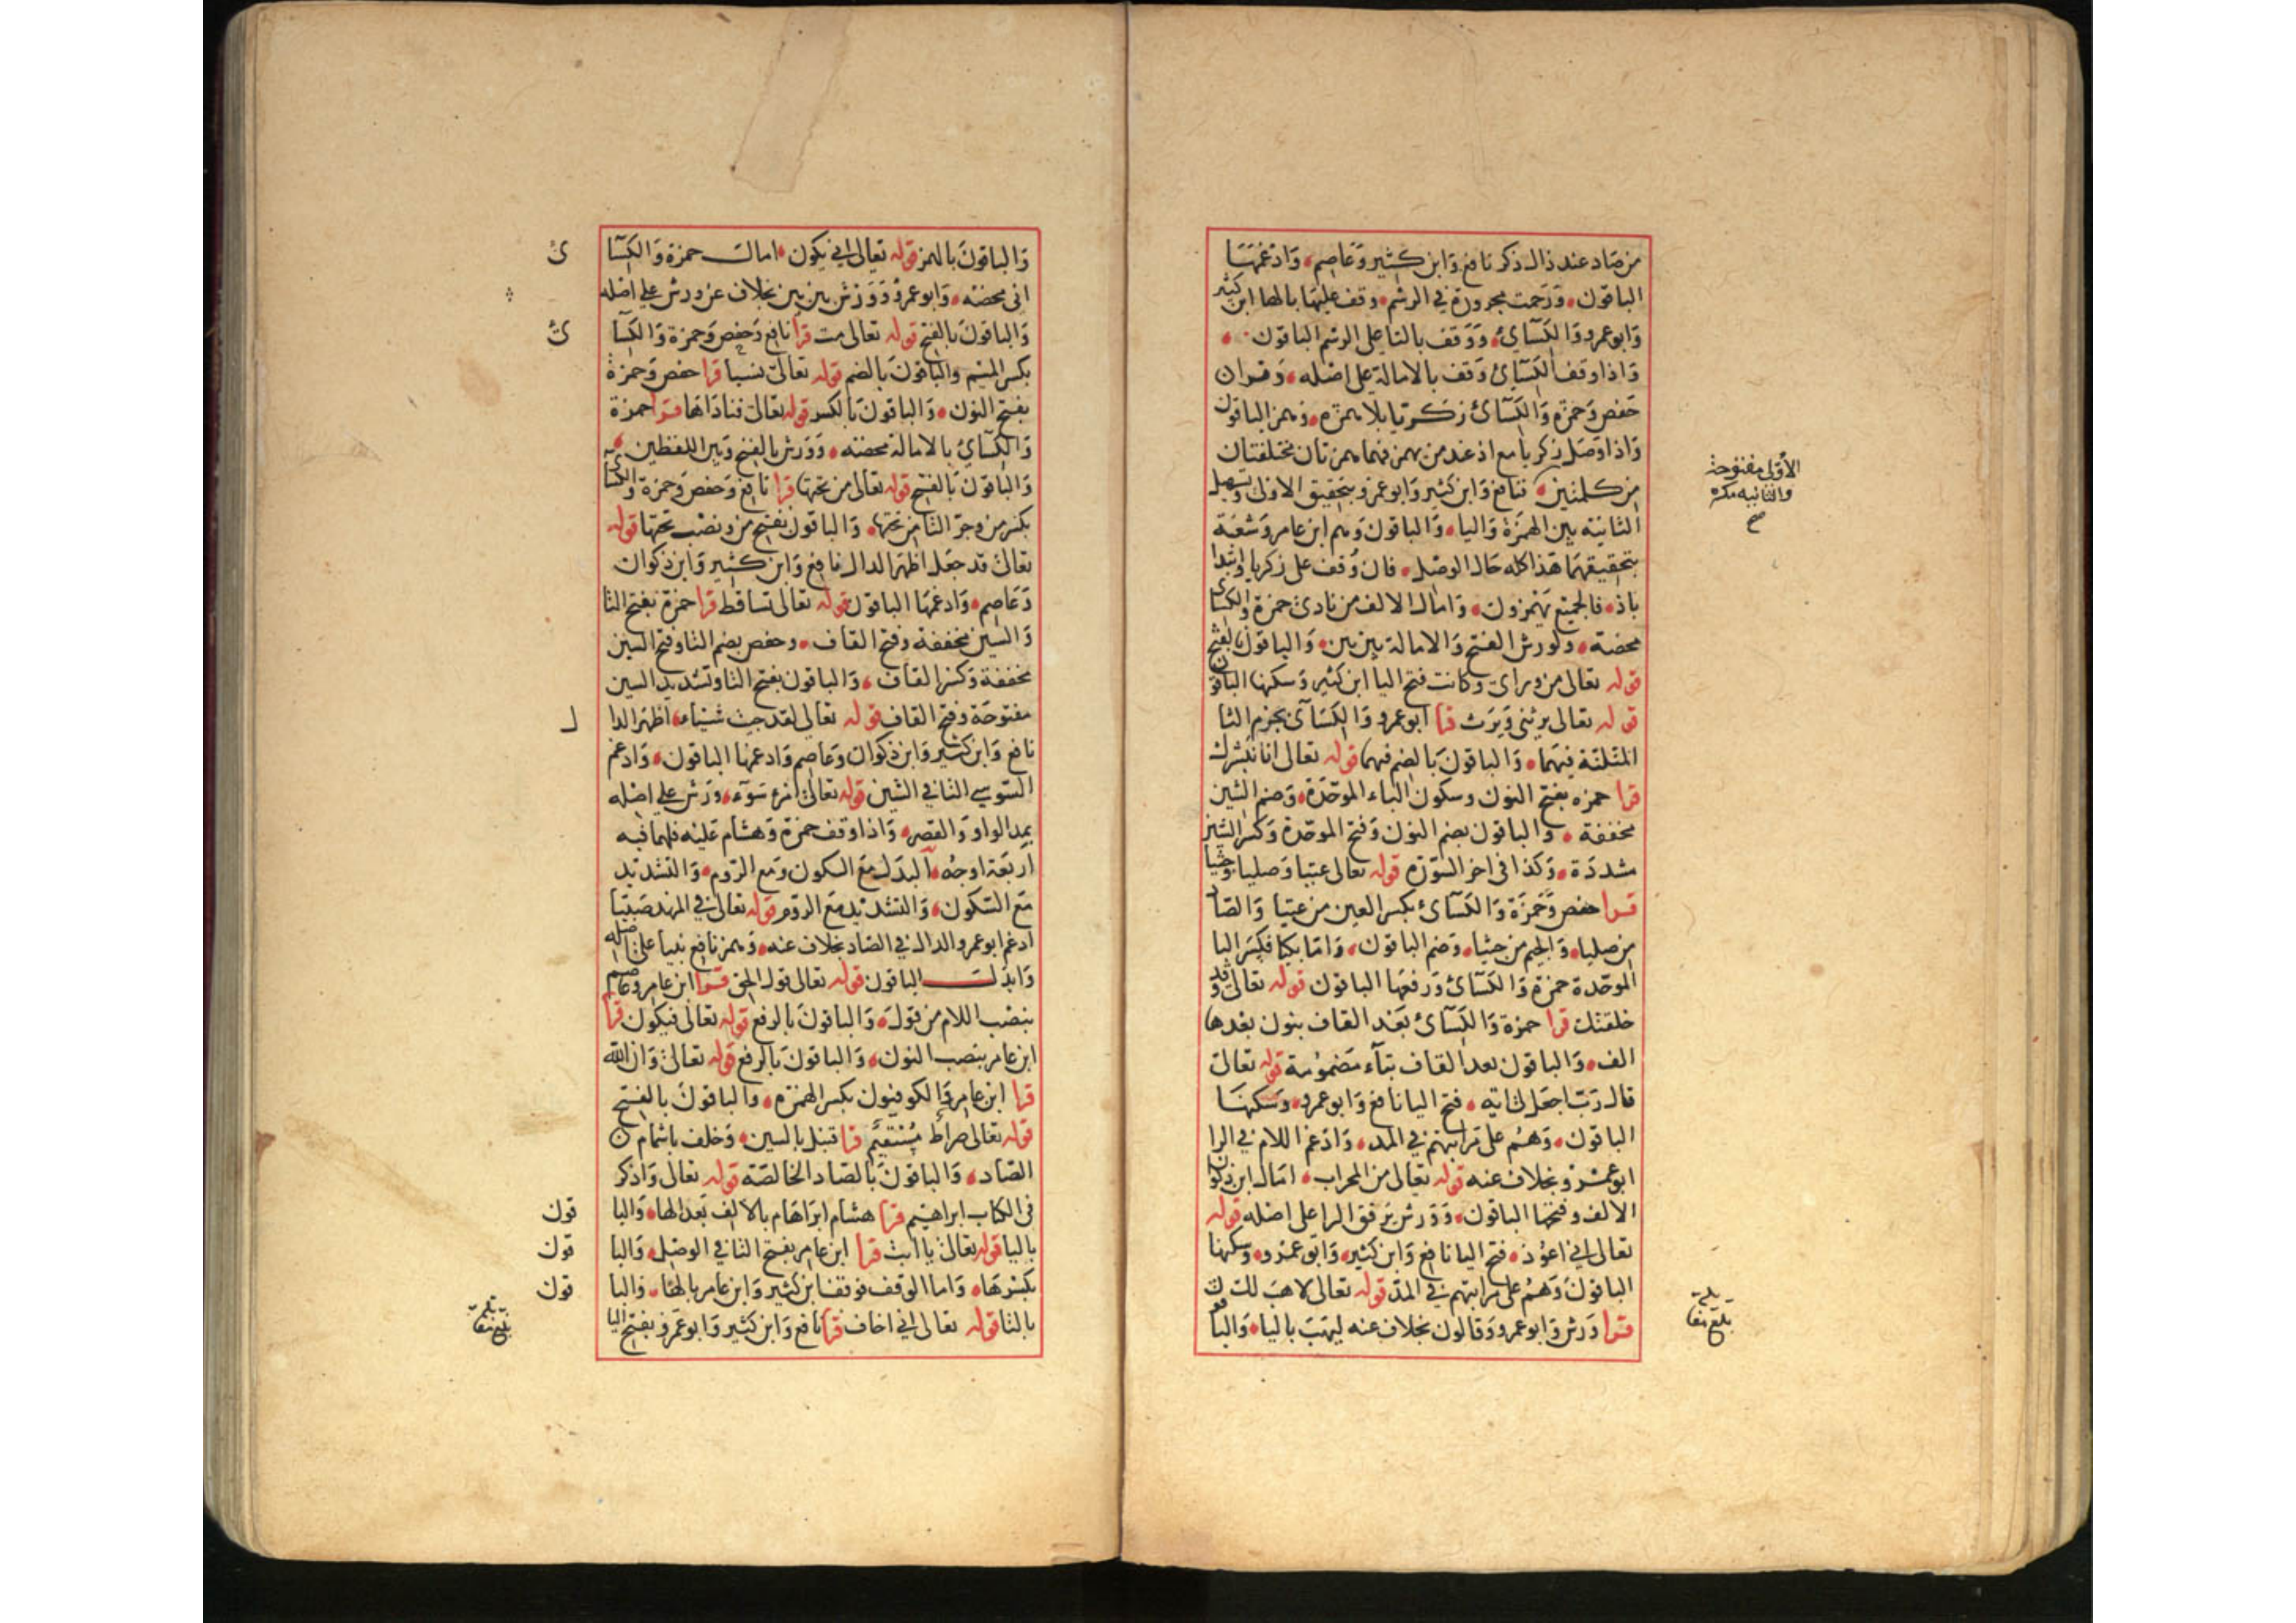 من صاد عند ذال ذكر نافع وابن كثير وعاصم وادغمها
الباقون ورحمت مجرورة في الرسم وقف عليها بالها ابن كثير
وابو عمرو والكسائي ووقف بالتا على الرسم الباقون
واذا وقف الكسائ وقف بالامالة على اصله وقران
حفص وحمزه والكسائ زكريا بلا همزه وهمز الباقون
واذا وصل زكريا مع اذ عند من همز فهما همزتان مختلفتان
من كلمتين فنافع وابن كثير وابو عمرو بتحقيق الاولى وتسهيل
الثانيه بين الهمزة واليا والباقون وهم ابن عامر وشعبة
بتحقيقهما هذا كله حال الوصل فان وقف على زكريا وابتدا
باذ فالجميع يهمزون وامال الالف من نادى حمزة والكسائ
محضة ولورش الفتح والامالة بين بين والباقون بالفتح
قوله تعالى من وراى وكانت فتح اليا ابن كثير وسكنها الباقون
قوله تعالى يرثني ويرث قرا ابو عمرو والكسائ بجزم الثا
المثلثة فيهما والباقون بالضم فيهما قوله تعالى انا نبشرك
قرا حمزه بفتح النون وسكون الباء الموحدة وضم الشين
مخففة والباقون بضم النون وفتح الموحدة وكسر الشين
مشددة وكذا فى اخر السوره قوله تعالى عتيا وصليا وجثيا
قرا حفص وحمزة والكسائ بكسر العين من عتيا والصاد
من صليا والجيم من جثيا وضم الباقون واما بكيا فكسر البا
الموحدة حمزة والكسائ ورفعها الباقون قوله تعالى وقد
خلقتك قرا حمزة والكسائ بعد القاف بنون بعدها
الف والباقون بعد القاف بتاء مضمومة قوله تعالى
قال رب اجعل لى ايه فتح اليا نافع وابو عمرو وسكنها
الباقون وهم على مراتبهم في المد وادغم اللام في الرا
ابو عمرو بخلاف عنه قوله تعالى من المحراب امال ابن ذكوان
الالف وفتحها الباقون وورش يرقق الرا على اصله قوله
تعالى اني اعوذ فتح اليا نافع وابن كثير وابو عمرو وسكنها
الباقون وهم على مراتبهم في المد قوله تعالى لاهب لك
قرا ورش وابو عمرو وقالون بخلاف عنه ليهب باليا والباقون
الأولى مفتوحة
والثانيه مكسوره
صح
بلغ مقابلة
والباقون بالهمز قوله تعالى اني يكون امالت حمزة والكسا
ئ
انى محضه وابو عمرو وورش بين بين بخلاف عن ورش على اصله
والباقون بالفتح قوله تعالى مت قرا نافع وحفص وحمزة والكسا
ئ
بكسر الميم والباقون بالضم قوله تعالى نسيا قرا حفص وحمزة
بفتح النون والباقون بالكسر قوله تعالى فناداها قرا حمزة
والكسائ بالامالة محضه وورش بالفتح وبين اللفظين
والباقون بالفتح قوله تعالى من تحتها قرا نافع وحفص وحمزة والكسائ
بكسر من وجر التا من تحتها والباقون بفتح من ونصب تحتها قوله
تعالى قد جعل اظهر الدال نافع وابن كثير وابن ذكوان
وعاصم وادغمها الباقون قوله تعالى تساقط قرا حمزة بفتح التا
والسين مخففة وفتح القاف وحفص بضم التا وفتح السين
مخففة وكسر القاف والباقون بفتح التا وتشديد السين
مفتوحة وفتح القاف قوله تعالى لقد جيت شيئا اظهر الدا
ل
نافع وابن كثير وابن ذكوان وعاصم وادغمها الباقون وادغم
السوسي التا في الشين قوله تعالى امرء سوء ورش على اصله
بمد الواو والقصر واذا وقف حمزة وهشام عليه فلهما فيه
اربعة اوجه البدل مع السكون ومع الروم والتشديد
مع السكون والتشديد مع الروم قوله تعالى في المهد صبيا
ادغم ابو عمرو الدال في الصاد بخلاف عنه وهمز نافع نبيا على اصله
وابدلت الباقون قوله تعالى قول الحق قرا ابن عامر وعاصم
بنصب اللام من قول والباقون بالرفع قوله تعالى فيكون قرا
ابن عامر بنصب النون والباقون بالرفع قوله تعالى وان الله
قرا ابن عامر والكوفيون بكسر الهمزه والباقون بالفتح
قوله تعالى صراط مستقيم قرا قنبل بالسين وخلف باشمام
الصاد والباقون بالصاد الخالصة قوله تعالى واذكر
فى الكتاب ابراهيم قرا هشام ابراهام بالالف بعد الها والبا
قون
باليا قوله تعالى يا ابت قرا ابن عامر بفتح التا في الوصل والبا
قون
بكسرها واما الوقف فوقف ابن كثير وابن عامر بالها والبا
قون
بالتا قوله تعالى اني اخاف قرا نافع وابن كثير وابو عمرو بفتح اليا
بلغ مقابلة